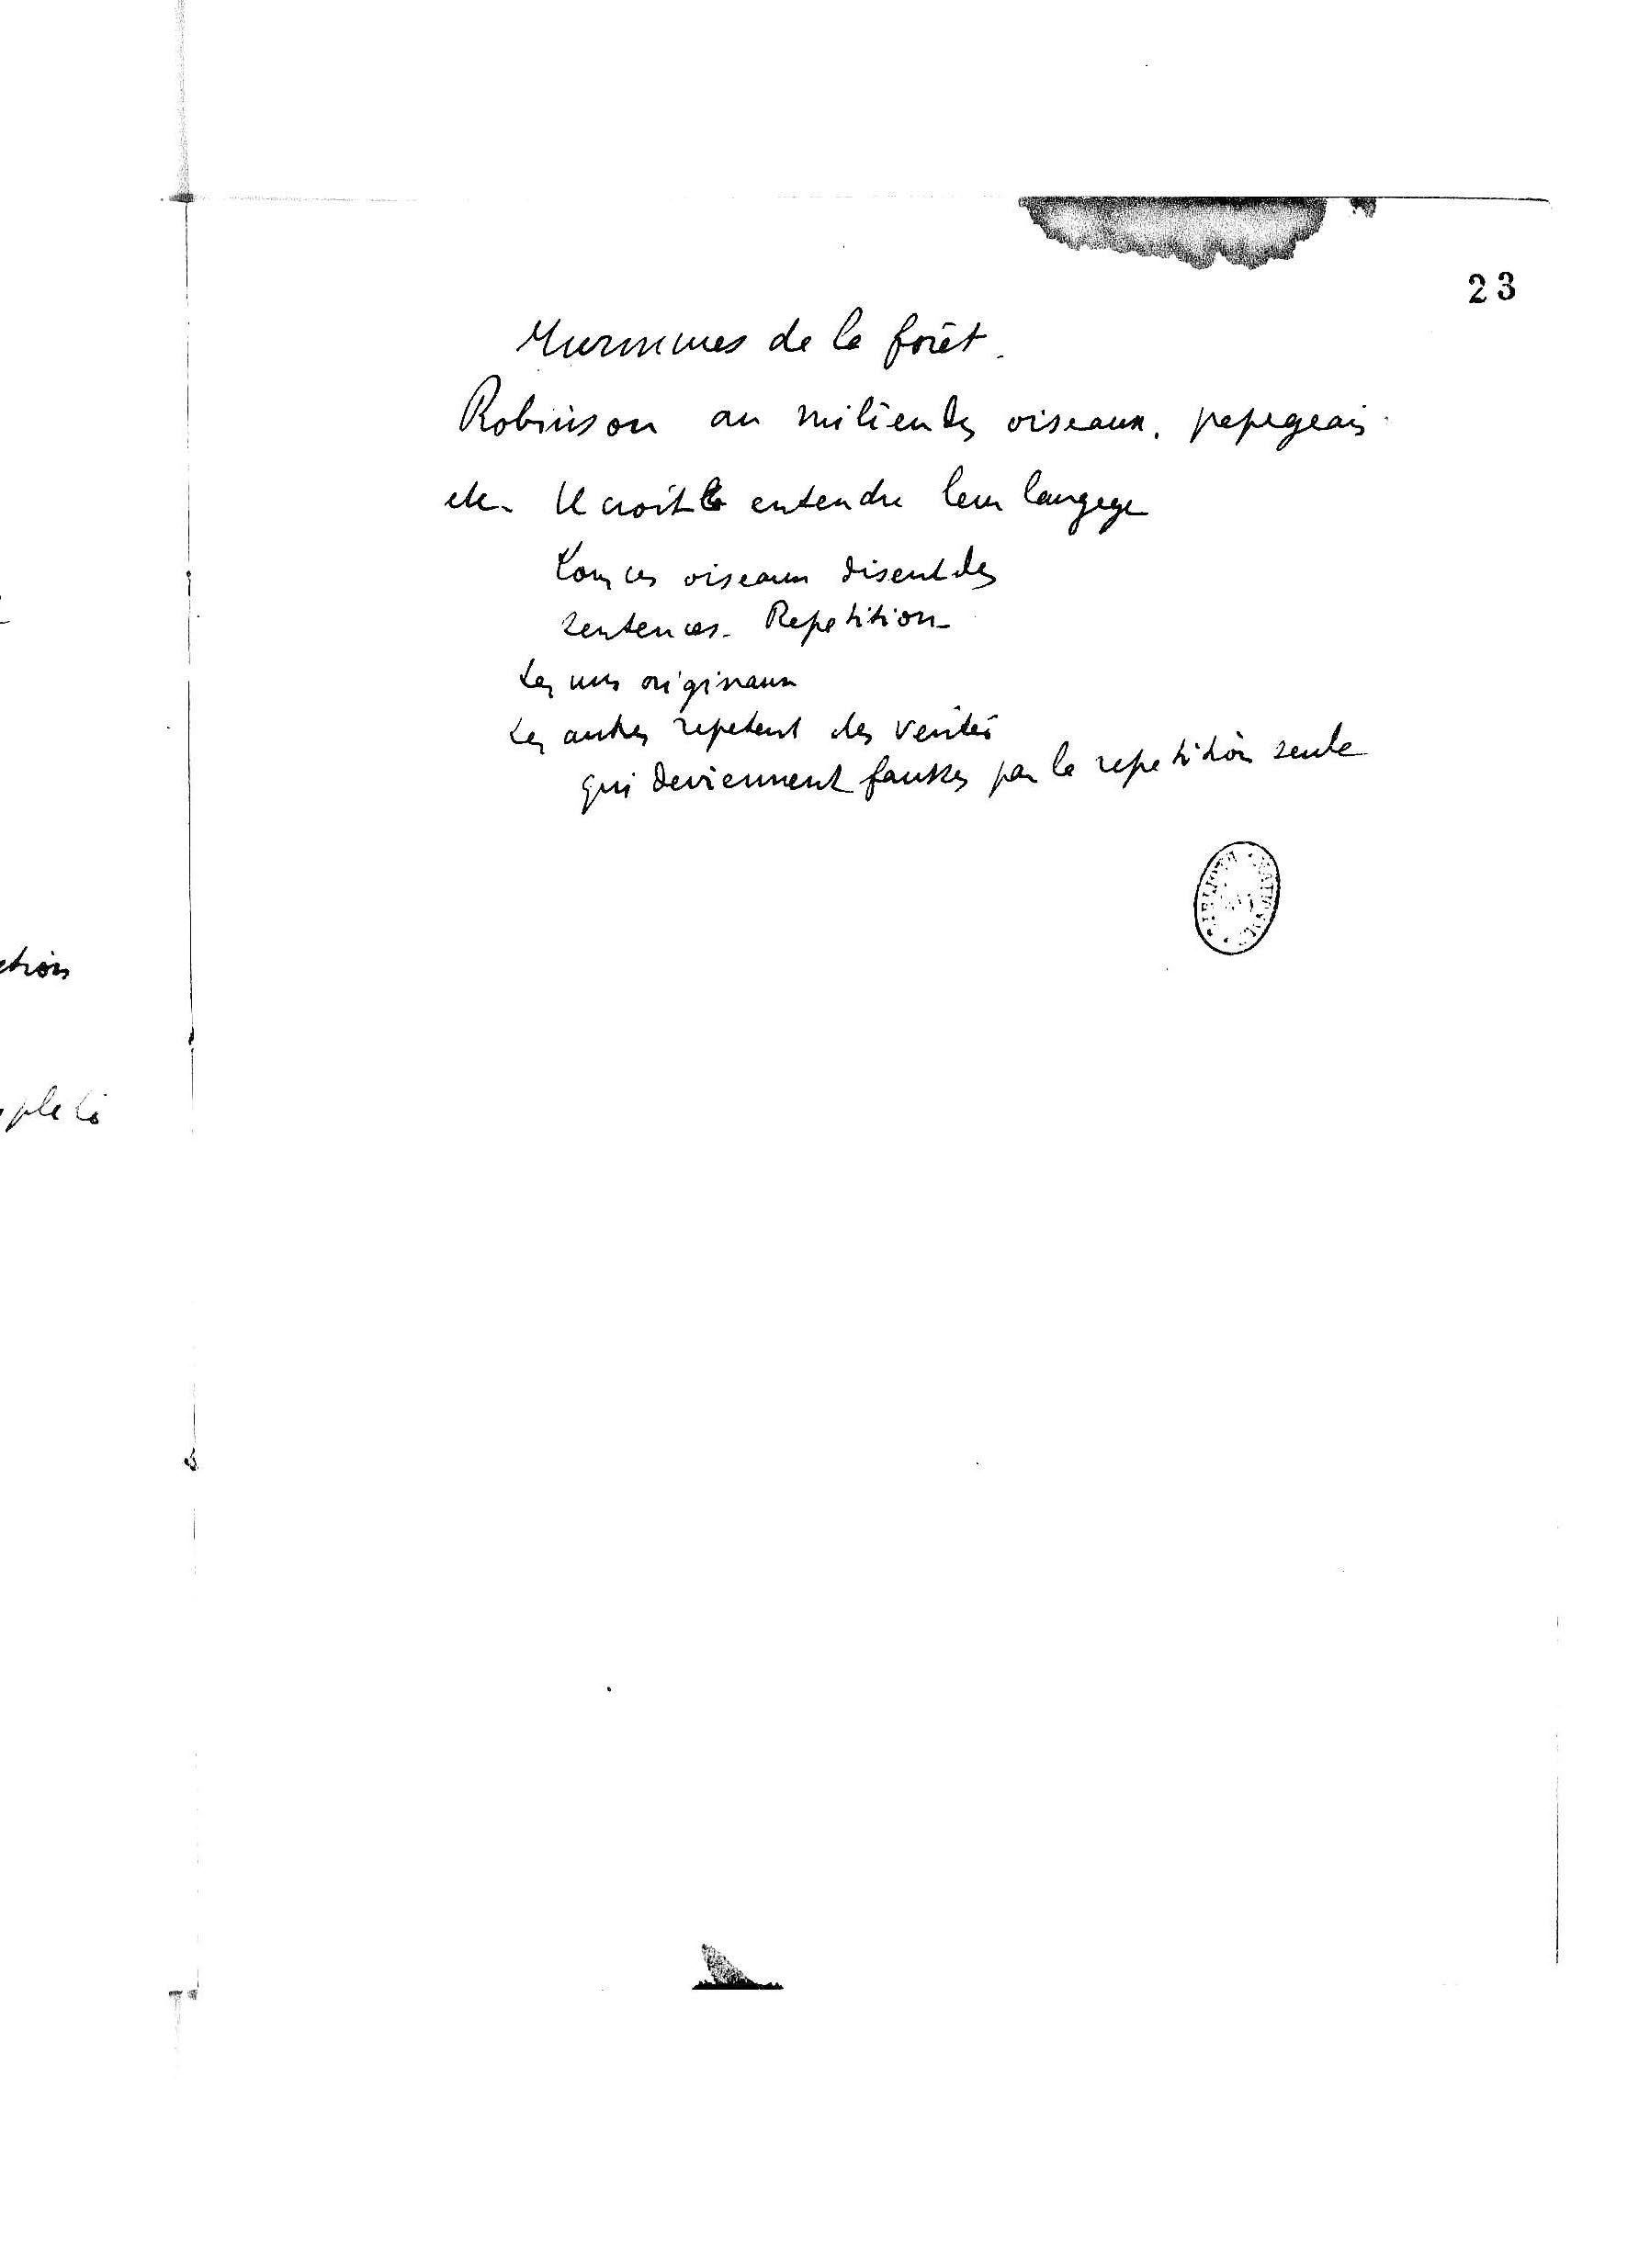 23
Murmures de la forêt.
Robinson au milieu des oiseaux. papegeais
etc. Il croit entendre leur langage
Tous ces oiseaux disent des
sentences. Repetition
Les uns originaux
Les autres repetent des verités
qui deviennent fausses par la repetition seule
ction